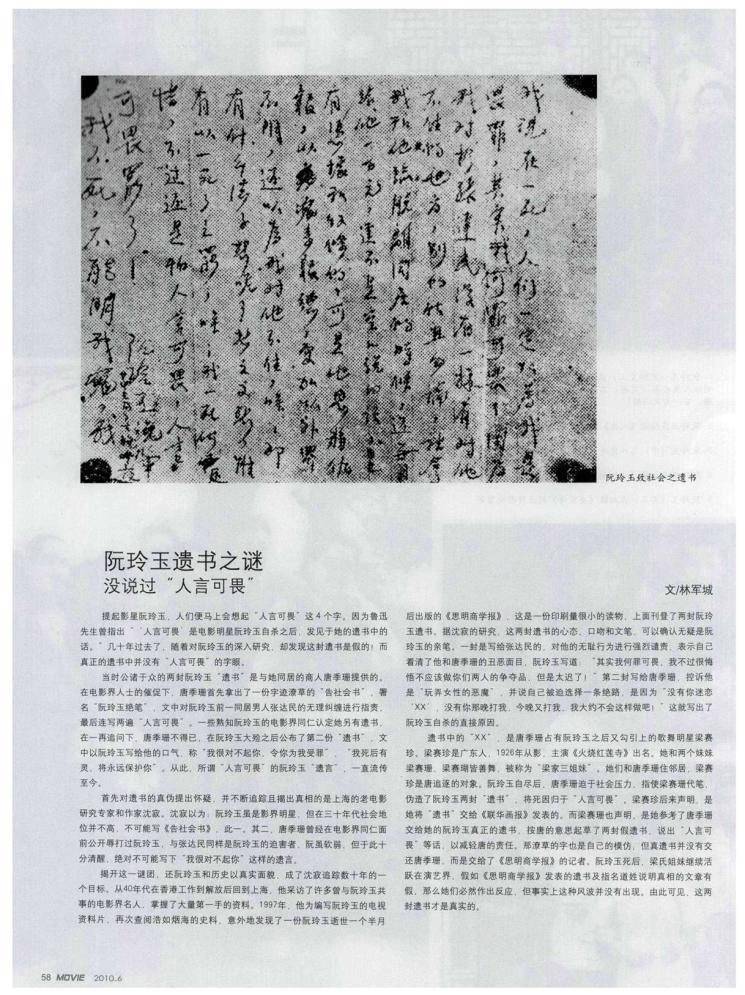 我现在一死，人们一定以为我是
畏罪，其实我何罪可畏，因为
我对于张达民没有一样有对他
不住的地方，别的姑且勿论，就拿
我和他临脱离同居的时候，还每月
给他一百元，这不是空口说的话，是
有凭据和收条的，可是他恩将仇
报，以冤来报德，更加以外界
不明，还以为我对他不住，唉，那
有什么法子想呢！想之又想，惟
有以一死了之罢，唉，我一死何足
惜，不过还是怕人言可畏，人言
可畏罢了！
阮玲玉绝笔
我不死，不能明我冤，我
阮玲玉致社会之遗书
阮玲玉遗书之谜
没说过“人言可畏”
文/林军城
提起影星阮玲玉，人们便马上会想起“人言可畏”这4个字。因为鲁迅
先生曾指出“‘人言可畏’是电影明星阮玲玉自杀之后，发见于她的遗书中的
话。”几十年过去了，随着对阮玲玉的深入研究，却发现这封遗书是假的！而
真正的遗书中并没有“人言可畏”的字眼。
当时公诸于众的两封阮玲玉“遗书”是与她同居的商人唐季珊提供的。
在电影界人士的催促下，唐季珊首先拿出了一份字迹潦草的“告社会书”，署
名“阮玲玉绝笔”，文中对阮玉玉前一同居男人张达民的无理纠缠进行指责，
最后连写两遍“人言可畏”。一些熟知阮玲玉的电影界同仁认定她另有遗书，
在一再追问下，唐季珊不得已，在阮玲玉大殓之后公布了第二份“遗书”，文
中以阮玉写给他的口气，称“我很对不起你，令你为我受罪”，“我死后有
灵，将永远保护你”。从此，所谓“人言可畏”的阮玲玉“遗言”，一直流传
至今。
首先对遗书的真伪提出怀疑，并不断追踪且揭出真相的是上海的老电影
研究专家和作家沈寂。沈寂以为：阮玲玉虽是影界明星，但在三十年代社会地
位并不高，不可能写《告社会书》，此一。其二，唐季珊曾经在电影界同仁面
前公开辱打过阮玲玉，与张达民同样是阮玲玉的迫害者，阮虽软弱，但于此十
分清醒，绝对不可能写下“我很对不起你”这样的遗言。
揭开这一谜团，还阮玲玉和历史以真实面貌，成了沈寂追踪数十年的一
个目标。从40年代在香港工作到解放后回到上海，他采访了许多曾与阮玲玉共
事的电影界名人，掌握了大量第一手的资料。1997年，他为编写阮玲玉的电视
资料片，再次查阅浩如烟海的史料，意外地发现了一份阮玲玉逝世一个半月
后出版的《思明商学报》，这是一份印刷量很小的读物，上面刊登了两封阮玲
玉遗书。据沈寂的研究，这两封遗书的心态、口吻和文笔，可以确认无疑是阮
玲玉的亲笔。一封是写给张达民的，对他的无耻行为进行强烈谴责，表示自己
看清了他和唐季珊的丑恶面目，阮玲玉写道：“其实我何罪可畏，我不过很悔
悟不应该做你们两人的争夺品，但是太迟了！”第二封写给唐季珊，控诉他
是“玩弄女性的恶魔”，并说自己被迫选择一条绝路，是因为“没有你迷恋
‘XX’，没有你那晚打我，今晚又打我，我大约不会这样做吧！”这就写出了
阮玲玉自杀的直接原因。
遗书中的“XX”，是唐季珊占有阮玲玉之后又勾引上的歌舞明星梁赛
珍。梁赛珍是广东人，1926年从影，主演《火烧红莲寺》出名。她和两个妹妹
梁赛珊、梁赛瑚皆善舞，被称为“梁家三姐妹”。她们和唐季珊住邻居，梁赛
珍是唐追逐的对象。阮玲玉自尽后，唐季珊迫于社会压力，指使梁赛珊代笔，
伪造了阮玲玉两封“遗书”，将死因归于“人言可畏”。梁赛珍后来声明，是
她将“遗书”交给《联华画报》发表的。而梁赛珊也声明，是她参考了唐季珊
交给她的阮玲玉真正的遗书，按唐的意思起草了两封假遗书，说出“人言可
畏”等话，以减轻唐的责任。那潦草的字也是自己的模仿，但真遗书并没有交
还唐季珊，而是交给了《思明商学报》的记者。阮玲玉死后，梁氏姐妹继续活
跃在演艺界，假如《思明商学报》发表的遗书及指名道姓说明真相的文章有
假，那么她们必然作出反应，但事实上这种风波并没有出现。由此可见，这两
封遗书才是真实的。
58 MOVIE 2010.6